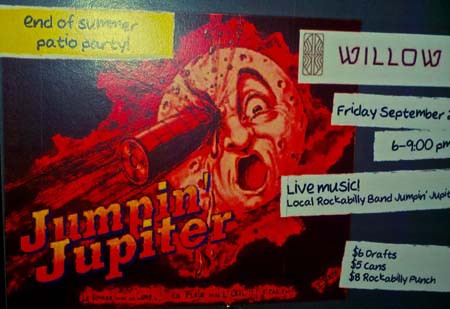 end of summer
patio party!
WILLOW
Friday September
6-9:00 pm
Live music!
Local Rockabilly Band Jumpin' Jupit
Jumpin'
Jupiter
$6 Drafts
$5 Cans
$8 Rockabilly Punch